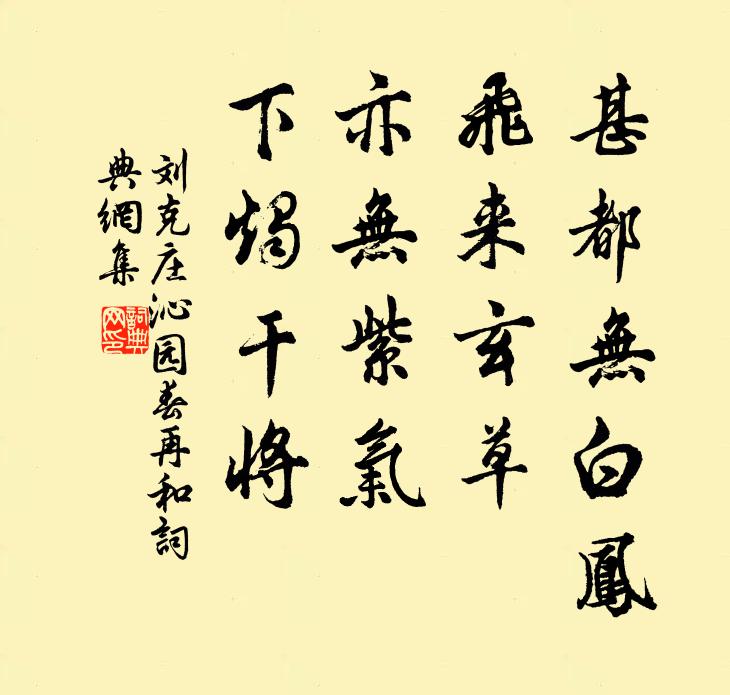 甚都無白鳳
飛来玄草
亦無紫氣
下燭干將
刘克庄沁园春再和詞
典網集
詞典網印